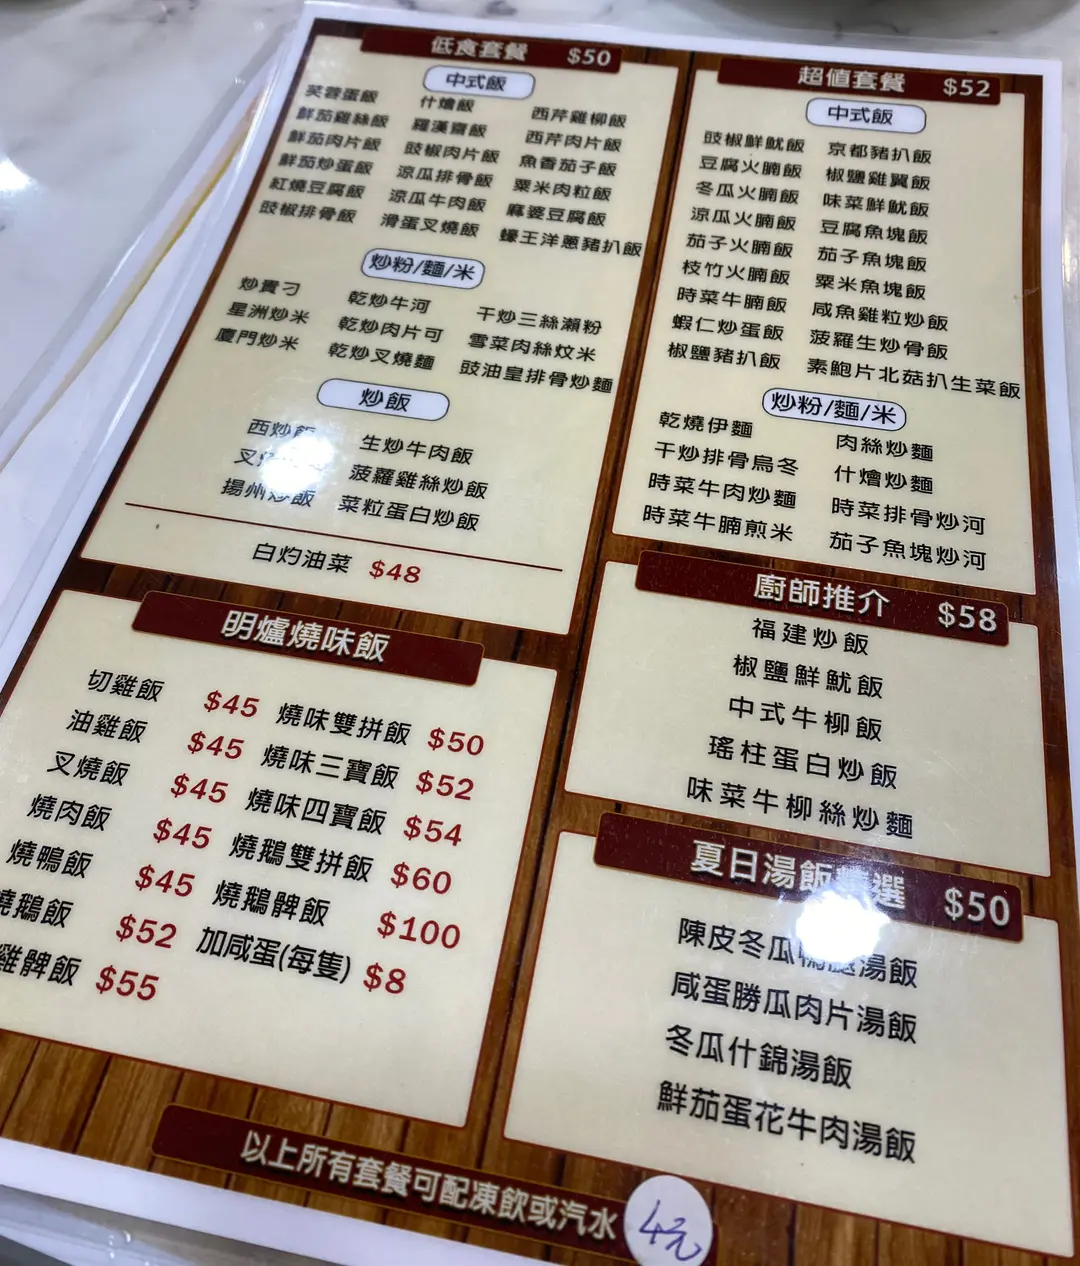 低食套餐 $50
中式飯
芙蓉蛋飯 什燴飯 西芹雞柳飯
鮮茄雞絲飯 羅漢齋飯 西芹肉片飯
鮮茄肉片飯 豉椒肉片飯 魚香茄子飯
鮮茄炒蛋飯 涼瓜排骨飯 粟米肉粒飯
紅燒豆腐飯 涼瓜牛肉飯 麻婆豆腐飯
豉椒排骨飯 滑蛋叉燒飯 蠔王洋蔥豬扒飯
炒粉/麵/米
炒貴刁 乾炒牛河 干炒三絲瀨粉
星洲炒米 乾炒肉片可 雪菜肉絲炆米
廈門炒米 乾炒叉燒麵 豉油皇排骨炒麵
炒飯
西炒飯 生炒牛肉飯
叉 菠蘿雞絲炒飯
揚州炒飯 菜粒蛋白炒飯
白灼油菜 $48
明爐燒味飯
切雞飯 $45 燒味雙拼飯 $50
油雞飯 $45 燒味三寶飯 $52
叉燒飯 $45 燒味四寶飯 $54
燒肉飯 $45 燒鵝雙拼飯 $60
燒鴨飯 $45 燒鵝髀飯 $100
燒鵝飯 $52 加咸蛋(每隻) $8
雞髀飯 $55
超值套餐 $52
中式飯
豉椒鮮魷飯 京都豬扒飯
豆腐火腩飯 椒鹽雞翼飯
冬瓜火腩飯 味菜鮮魷飯
涼瓜火腩飯 豆腐魚塊飯
茄子火腩飯 茄子魚塊飯
枝竹火腩飯 粟米魚塊飯
時菜牛腩飯 咸魚雞粒炒飯
蝦仁炒蛋飯 菠蘿生炒骨飯
椒鹽豬扒飯 素鮑片北菇扒生菜飯
炒粉/麵/米
乾燒伊麵 肉絲炒麵
干炒排骨烏冬 什燴炒麵
時菜牛肉炒麵 時菜排骨炒河
時菜牛腩煎米 茄子魚塊炒河
廚師推介 $58
福建炒飯
椒鹽鮮魷飯
中式牛柳飯
瑤柱蛋白炒飯
味菜牛柳絲炒麵
夏日湯飯精選 $50
陳皮冬瓜鴨腿湯飯
咸蛋勝瓜肉片湯飯
冬瓜什錦湯飯
鮮茄蛋花牛肉湯飯
以上所有套餐可配凍飲或汽水 4元